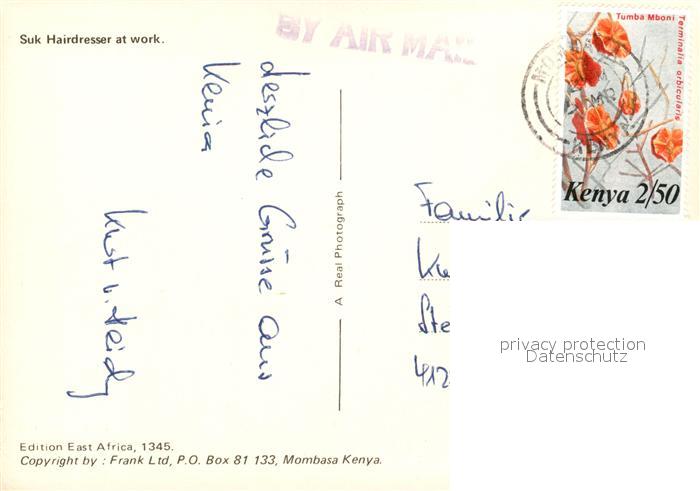 Suk Hairdresser at work.
BY AIR MAIL
Tumba Mboni
Terminalia orbicularis
Kenya 2/50
KENYA
Herzliche Grüsse aus
Kenia
Kurt u. Heidy
A Real Photograph
Familie
privacy protection
Datenschutz
Edition East Africa, 1345.
Copyright by : Frank Ltd, P.O. Box 81 133, Mombasa Kenya.